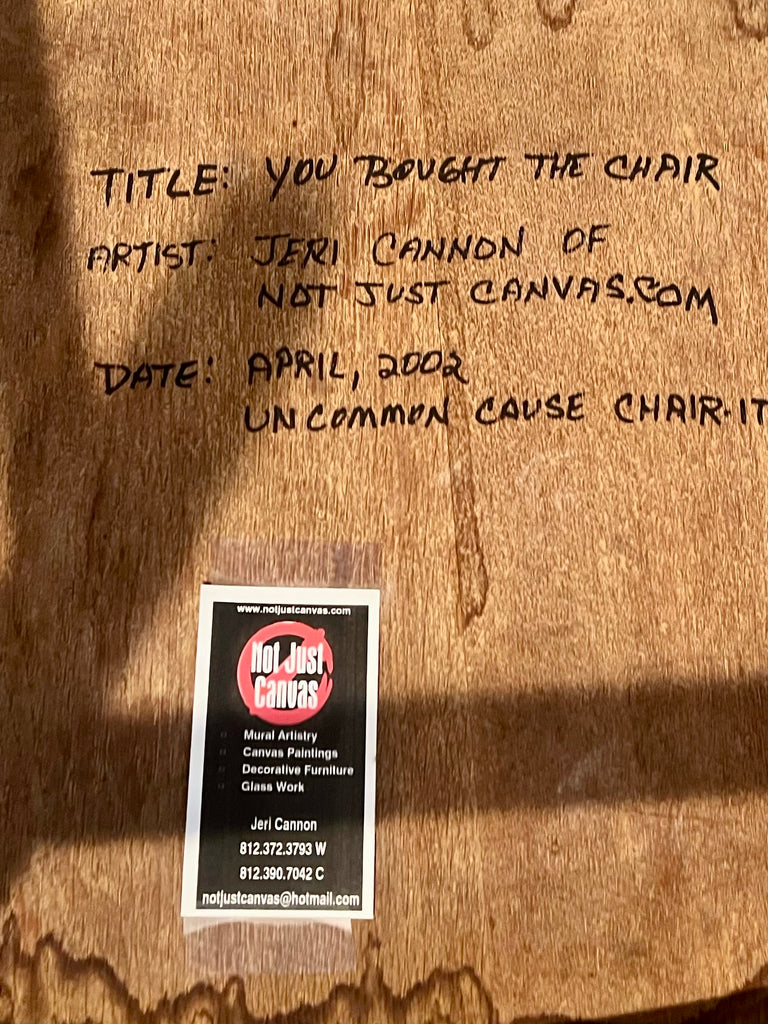 TITLE: YOU BOUGHT THE CHAIR
ARTIST: JERI CANNON OF
NOT JUST CANVAS.COM
DATE: APRIL, 2002
UNCOMMON CAUSE CHAIR-IT
www.notjustcanvas.com
Not Just
Canvas
Mural Artistry
Canvas Paintings
Decorative Furniture
Glass Work
Jeri Cannon
812.372.3793 W
812.390.7042 C
notjustcanvas@hotmail.com